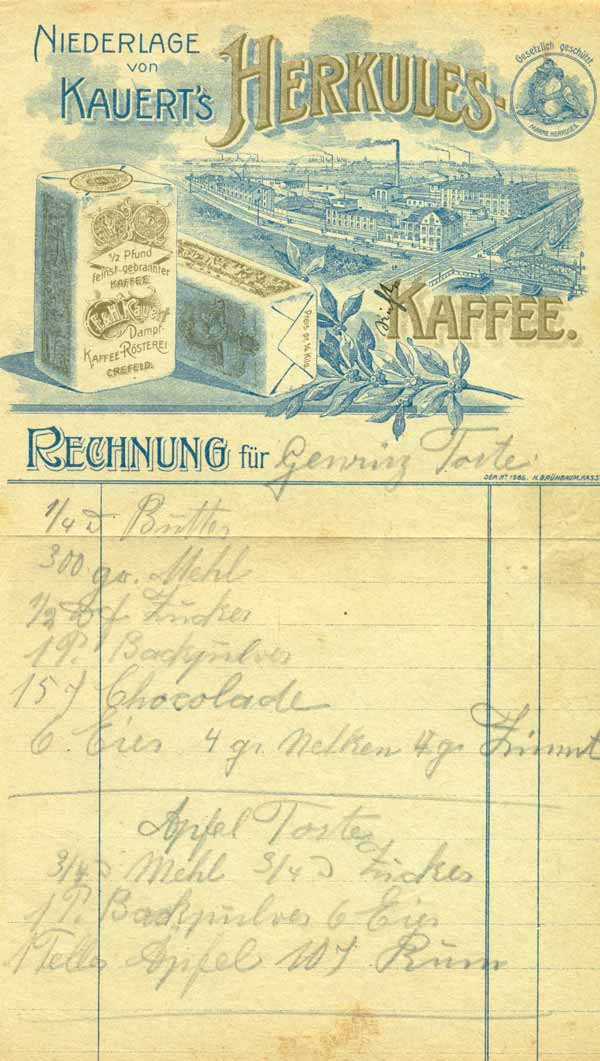 NIEDERLAGE
VON
KAUERT'S
HERKULES-
Gesetzlich geschützt.
MARKE HERKULES.
1/2 Pfund
feinst-gebrannter
KAFFEE
F. & H. Kauert
Dampf-
KAFFEE-RÖSTEREI
CREFELD.
Preis pr. 1/2 Kilo
KAFFEE.
RECHNUNG für Gewürz Torte
DER.Nº 1586. H. GRÜNBAUM, KASS
1/4 ℔ Butter
300 gr. Mehl
1/2 ℔ f. Zucker
1 P. Backpulver
15 ₰ Chocolade
6. Eier 4 gr. Nelken 4 gr. Zimmt
Apfel Torte
3/4 ℔ Mehl 3/4 ℔ Zucker
1 P. Backpulver 6 Eier
1 Teller Äpfel 10 ₰ Rum